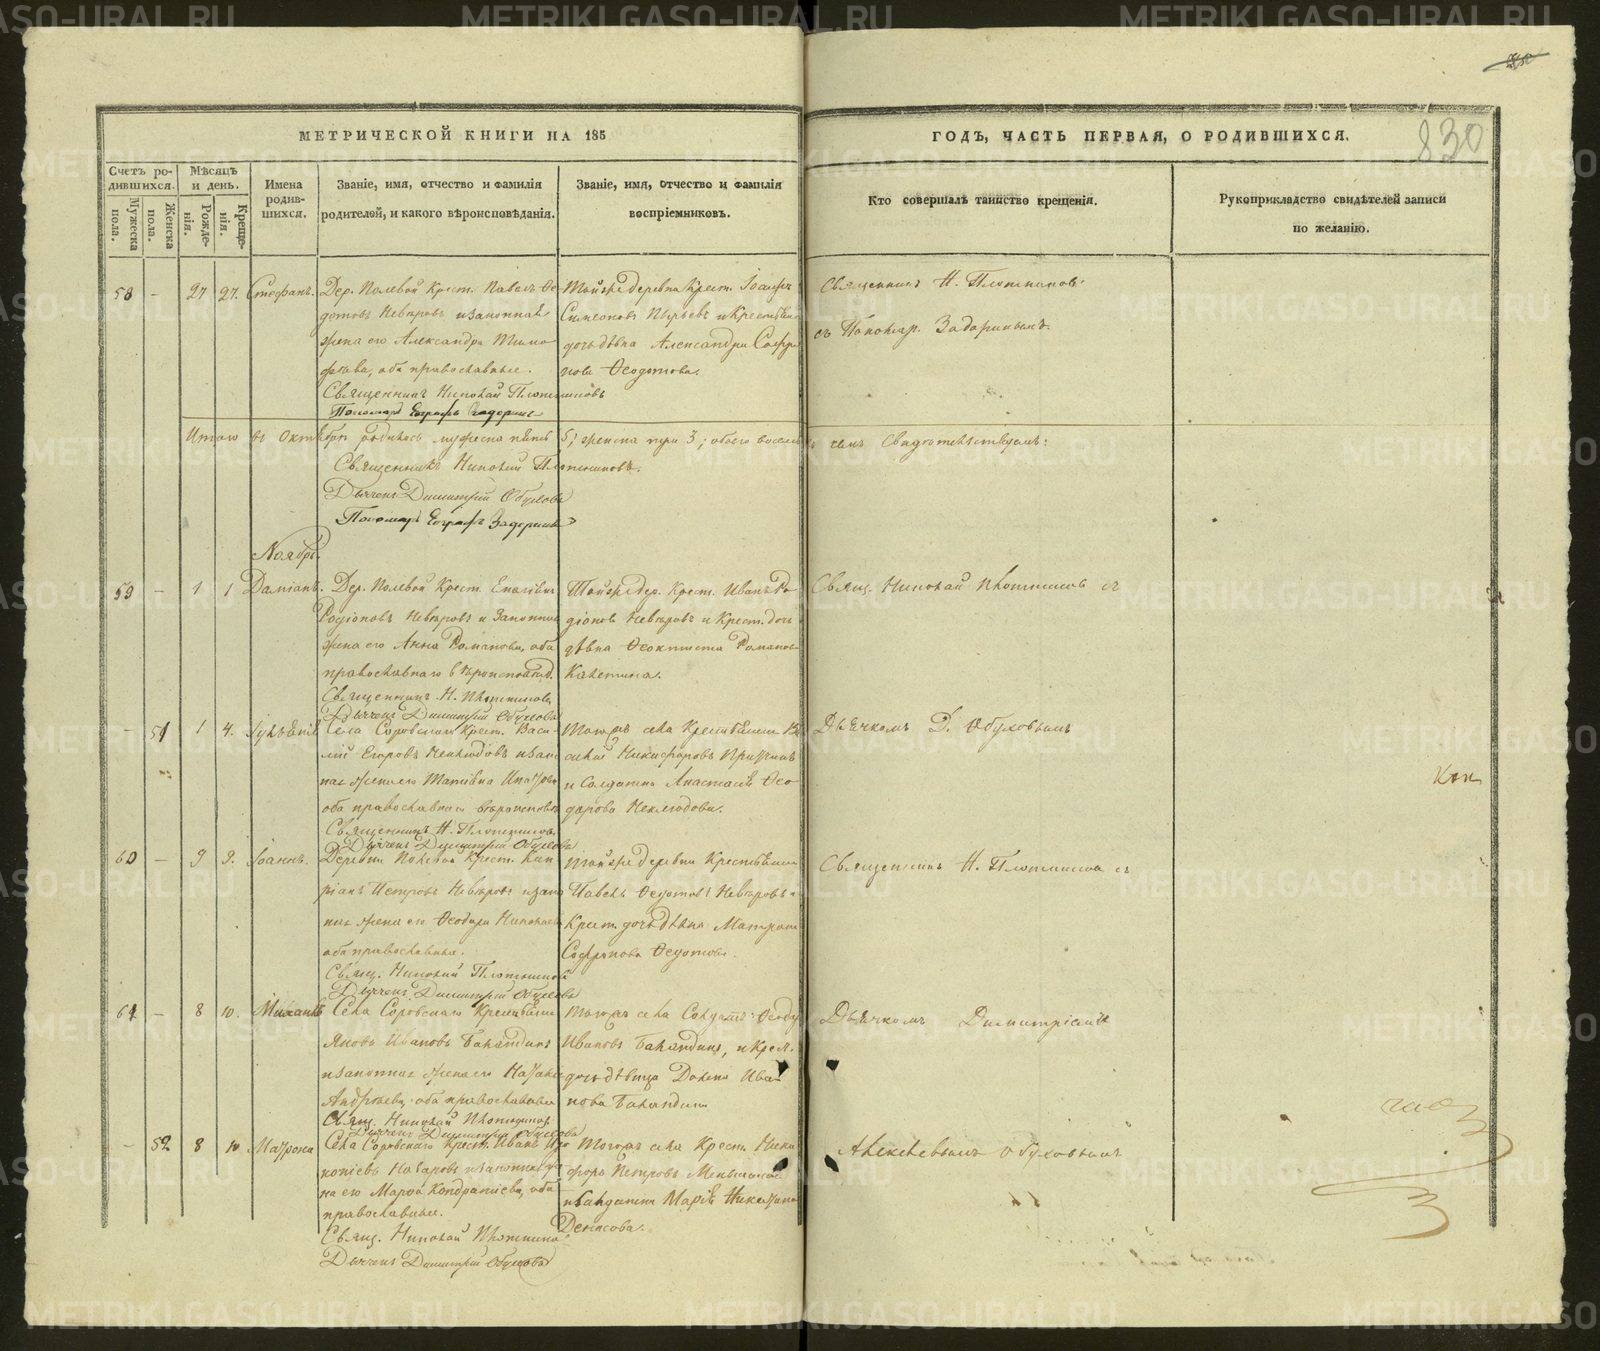 METRIKI.GASO-URAL.RU
830
МЕТРИЧЕСКОЙ КНИГИ НА 185
ГОДЪ, ЧАСТЬ ПЕРВАЯ, О РОДИВШИХСЯ.
Счетъ родившихся.
Мужеска пола.
Женска пола.
Мѣсяцъ и день.
Рожденія.
Крещенія.
Имена родившихся.
Званіе, имя, отчество и фамилія
родителей, и какого вѣроисповѣданія.
Званіе, имя, отчество и фамилія
воспріемниковъ.
Кто совершалъ таинство крещенія.
Рукоприкладство свидѣтелей записи
по желанію.
58 - 27 27. Стефанъ.
Дер. Полевой Крест. Павелъ Ѳе
дотовъ Невѣровъ и законная
жена его Александра Тимо
фѣева, оба православные.
Священникъ Николай Плотниковъ
Пономарь Евграфъ Задоринъ
Тойже деревни Крест.
Симеоновъ
дочь дѣвка Александра Софро
нова Ѳеодотова.
Священникъ Н. Плотниковъ
съ Пономар. Задоринымъ.
Итого въ Октябрѣ родилось мужеска пять 5, женска три 3, обоего восемь
Священникъ Николай Плотниковъ.
Дьячекъ Димитрій Обуховъ
Пономарь Евграфъ Задоринъ
Ноябрь.
59 - 1 1 Даміанъ.
Дер. Полевой Крест.
Родіоновъ Невѣровъ и Законная
жена его Анна Романова, оба
православнаго вѣроисповѣд.
Священникъ Н. Плотниковъ
Дьячекъ Димитрій Обуховъ
Тойже дер. Крест. Иванъ Ро
діоновъ Невѣровъ и Крест. дочь
дѣвка Ѳеоктиста Романова
Калетина.
Свящ. Николай Плотниковъ съ
- 51 1 4.
Села Соровскаго Крест. Васи
лій Егоровъ Неклюдовъ и закон
ная жена его Татіана
оба православнаго вѣроисповѣд
Священникъ Н. Плотниковъ
Дьячекъ Димитрій Обуховъ
Тогожъ села Крестьянинъ Ва
силій Никифоровъ
и Солдатка Анастасія Ѳео
дорова Неклюдова.
Дьячкомъ Д. Обуховымъ
60 - 9 9. Іоаннъ.
Деревни Полевой Крест. Кип
ріанъ Петровъ Невѣровъ и закон
ная жена его Ѳеодора Николаева
оба православные.
Свящ. Николай Плотниковъ
Дьячекъ Димитрій Обуховъ
Тойже деревни Крестьянинъ
Павелъ Ѳедотовъ Невѣровъ и
Крест. дочь дѣвка Матрона
Софронова Ѳедотова.
Священникъ Н. Плотниковъ съ
61 - 8 10. Михаилъ
Села Соровскаго Крестьянинъ
Яковъ Ивановъ Баландинъ
и законная жена его
Андрѣева оба православные
Свящ. Николай Плотниковъ
Дьячекъ Димитрій Обуховъ
Тогожъ села Солдатъ Ѳеодоръ
Ивановъ Баландинъ, и Крест.
дочь дѣвица Ива
нова Баландина
Дьячкомъ Димитріемъ
- 52 8 10 Матрона
Села Соровскаго Крест. Иванъ Про
копіевъ и законная же
на его Марѳа Кондратіева, оба
православные.
Свящ. Николай Плотниковъ
Дьячекъ Димитрій Обуховъ
Тогожъ села Крест. Ники
форъ Петровъ
и Солдатка Марія
Денисова.
Алексѣевымъ Обуховымъ